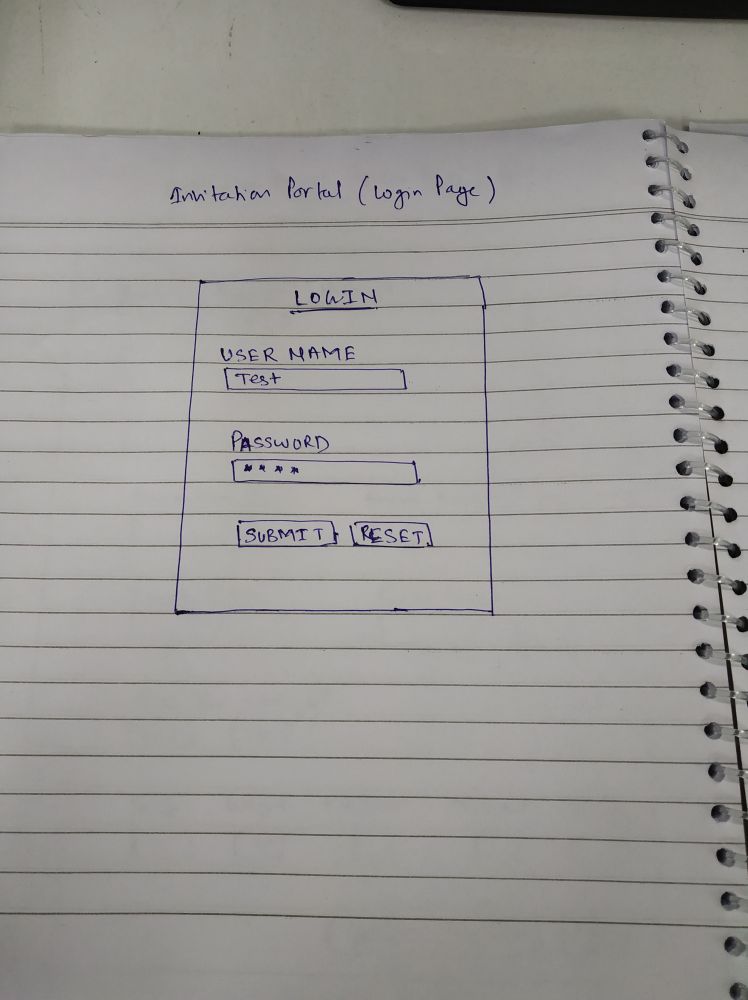 Invitation Portal (Login Page)
LOGIN
USER NAME
Test
PASSWORD
****
SUBMIT RESET